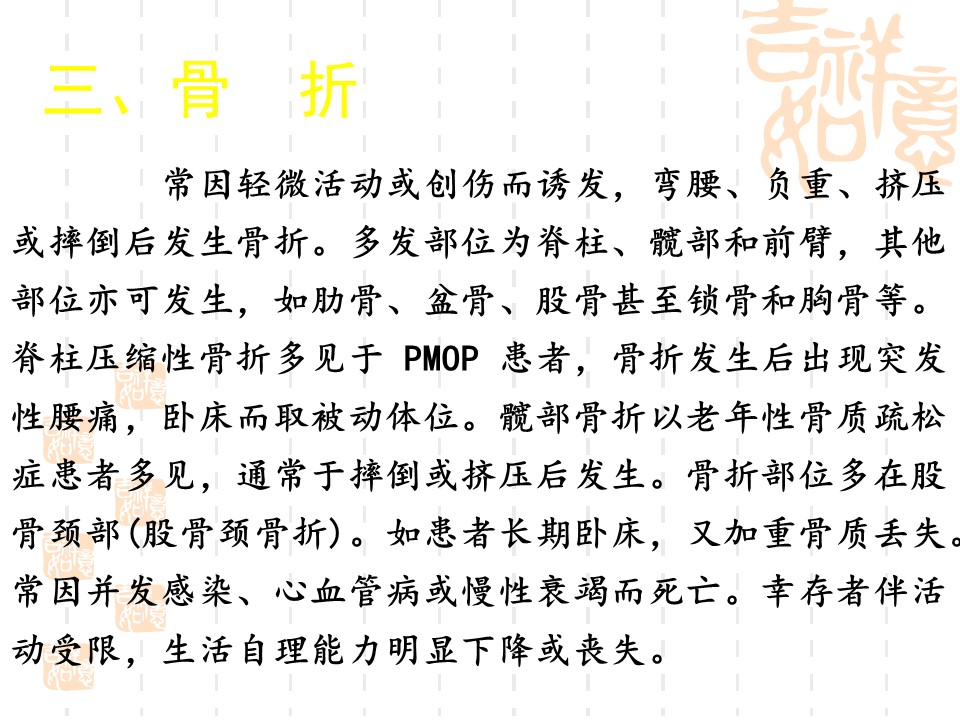 吉祥如意
三、骨　折
常因轻微活动或创伤而诱发，弯腰、负重、挤压
或摔倒后发生骨折。多发部位为脊柱、髋部和前臂，其他
部位亦可发生，如肋骨、盆骨、股骨甚至锁骨和胸骨等。
脊柱压缩性骨折多见于 PMOP 患者，骨折发生后出现突发
性腰痛，卧床而取被动体位。髋部骨折以老年性骨质疏松
症患者多见，通常于摔倒或挤压后发生。骨折部位多在股
骨颈部(股骨颈骨折)。如患者长期卧床，又加重骨质丢失。
常因并发感染、心血管病或慢性衰竭而死亡。幸存者伴活
动受限，生活自理能力明显下降或丧失。
吉祥如意
吉祥如意
吉祥如意
吉祥如意
吉祥如意
吉祥如意